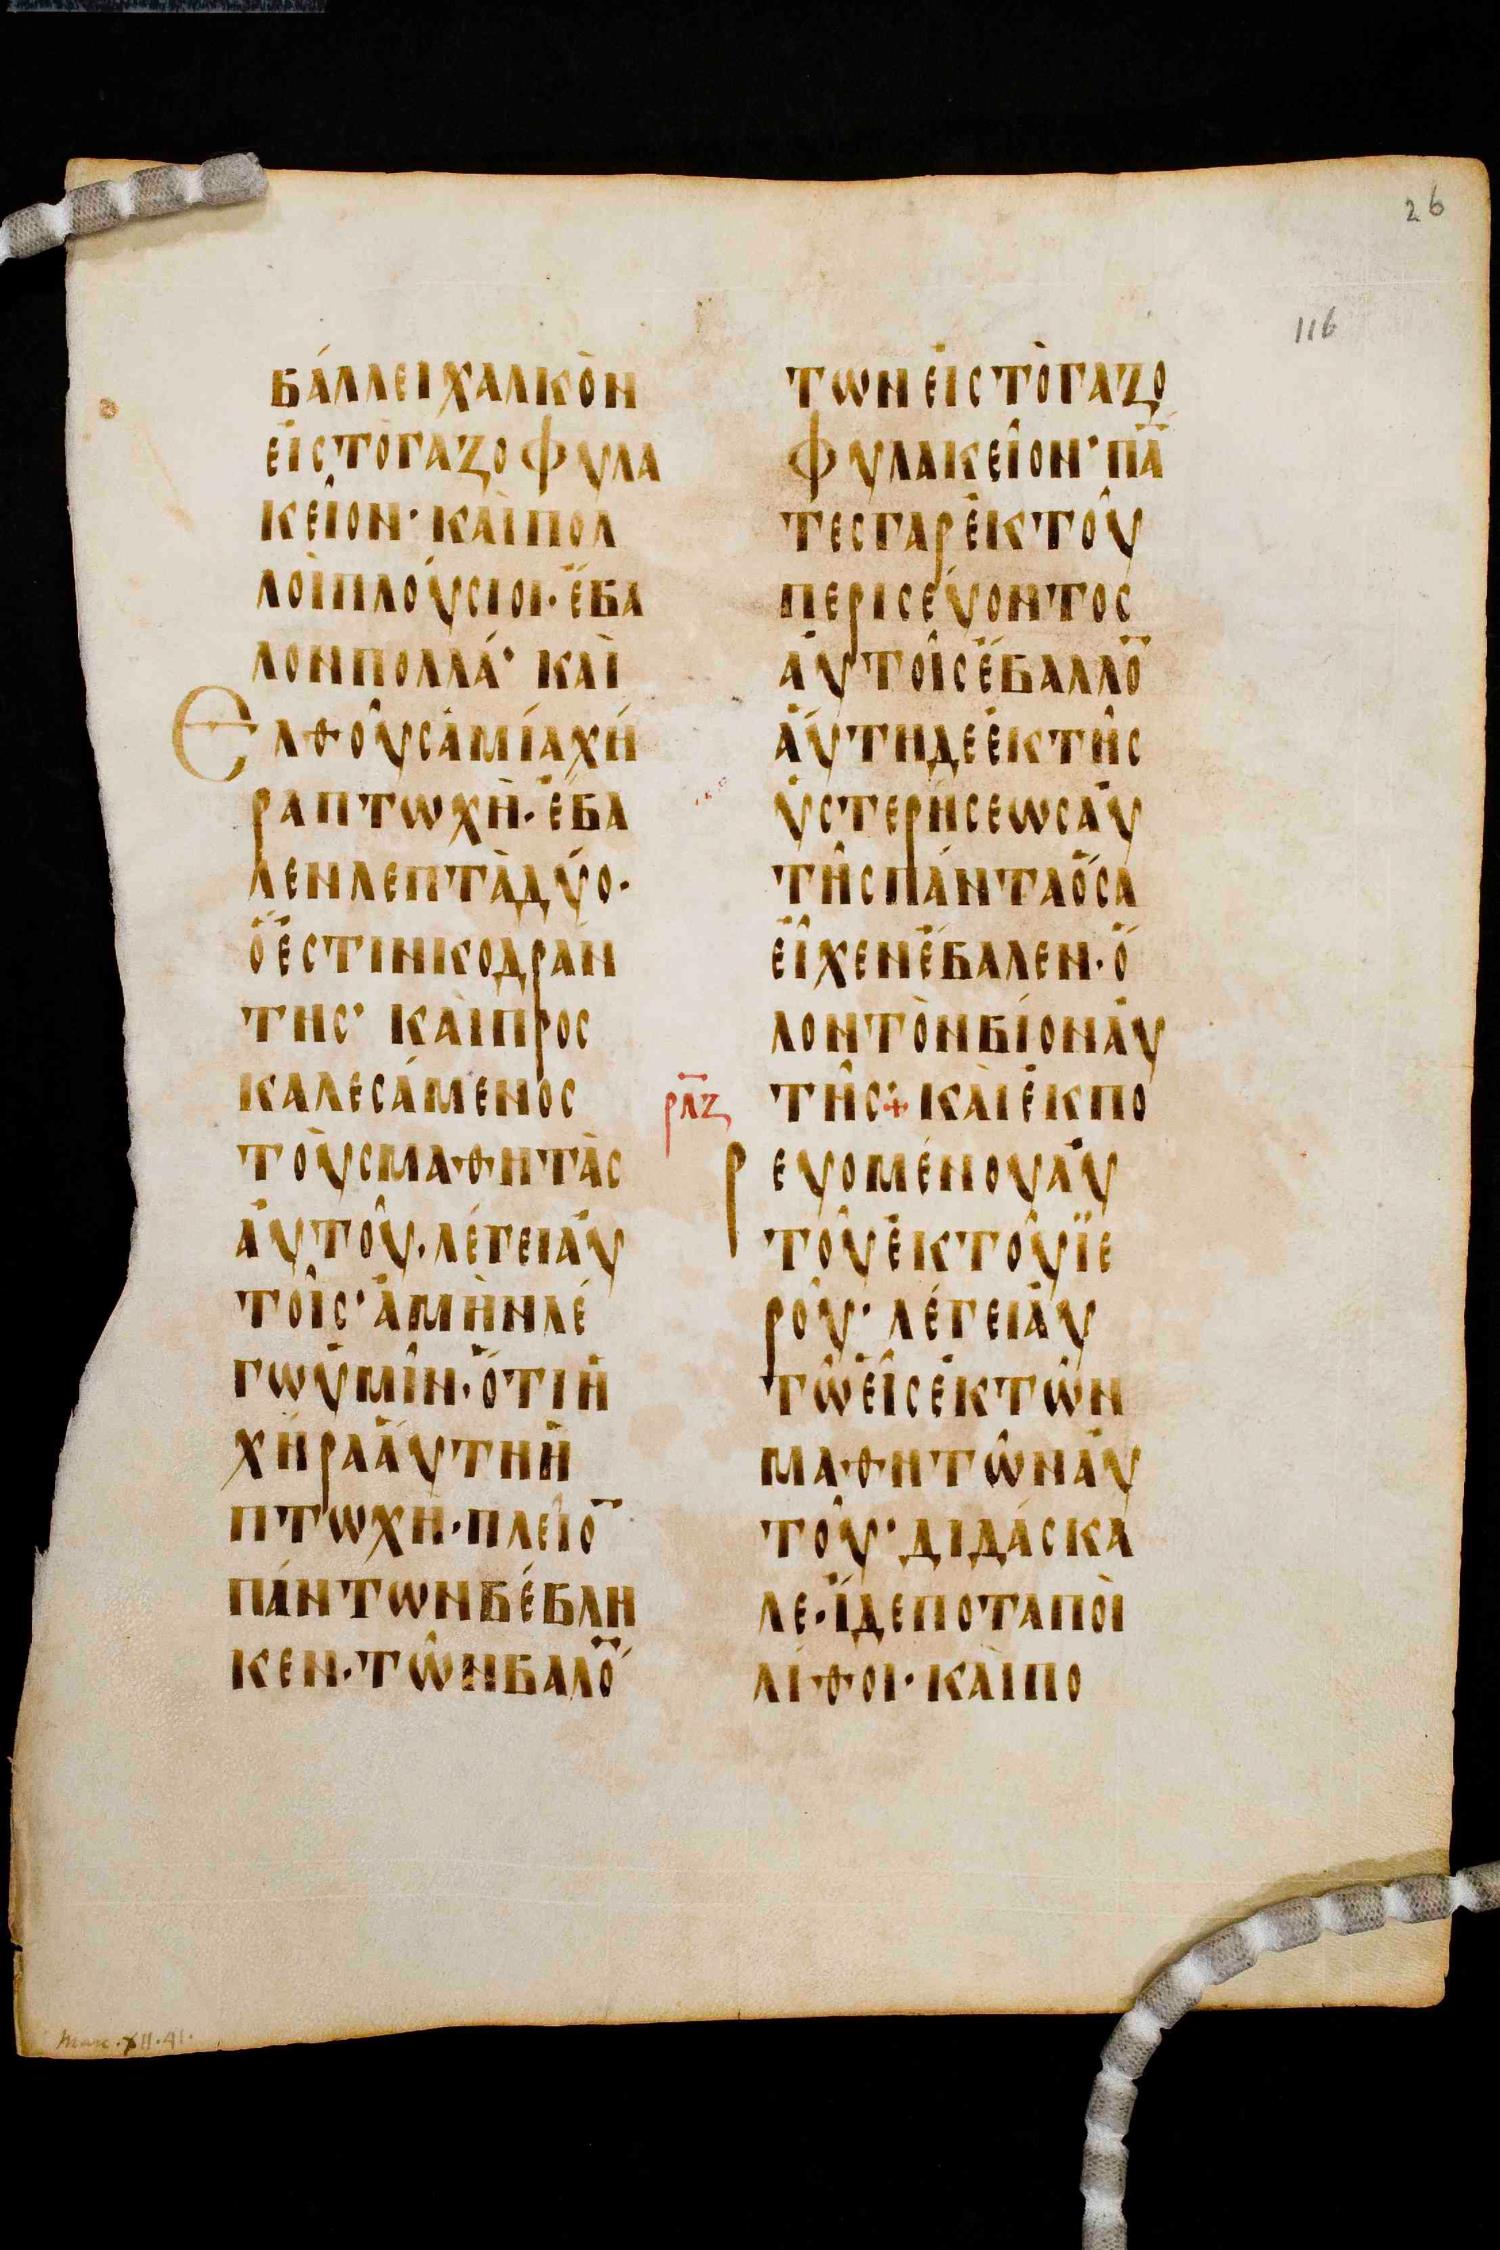 26
116
βάλλει χαλκὸν
εἰς τὸ γαζοφυλα
κεῖον· καὶ πολ
λοὶ πλούσιοι· ἔβα
λον πολλά· καὶ
Ελθοῦσα μία χή
ρα πτωχὴ· ἔβα
λεν λεπτὰ δύο·
ὅ ἐστιν κοδράν
της· καὶ προς
καλεσάμενος
τοὺς μαθητὰς
ἀυτοῦ· λέγει ἀυ
τοῖς· ἀμὴν λέ
γω ὑμῖν· ὅτι ἡ
χήρα ἅυτη ἡ
πτωχὴ· πλεῖο̅
πάντων βέβλη
κεν· τῶν βαλό̅
των εἰς τὸ γαζο
φυλακεῖον· πά̅
τες γαρ ἐκ τοῦ
περισεύοντος
ἀυτοῖς ἔβαλλο̅
ἅυτη δε ἐκ τῆς
ὑστερήσεως ἀυ
τῆς πάντα ὅσα
εἶχεν ἔβαλεν· ὅ
λον τὸν βίον ἀυ
ρλζ τῆς⁘ καὶ ἐκπο
ρευομένου ἀυ
τοῦ ἐκ τοῦ ϊε
ροῦ· λέγει ἀυ
τῶ εἷς ἐκ τῶν
μαθητῶν ἀυ
τοῦ· διδάσκα
λε· ἴδε ποταποὶ
λίθοι· καὶ πο
Marc. XII. 41.